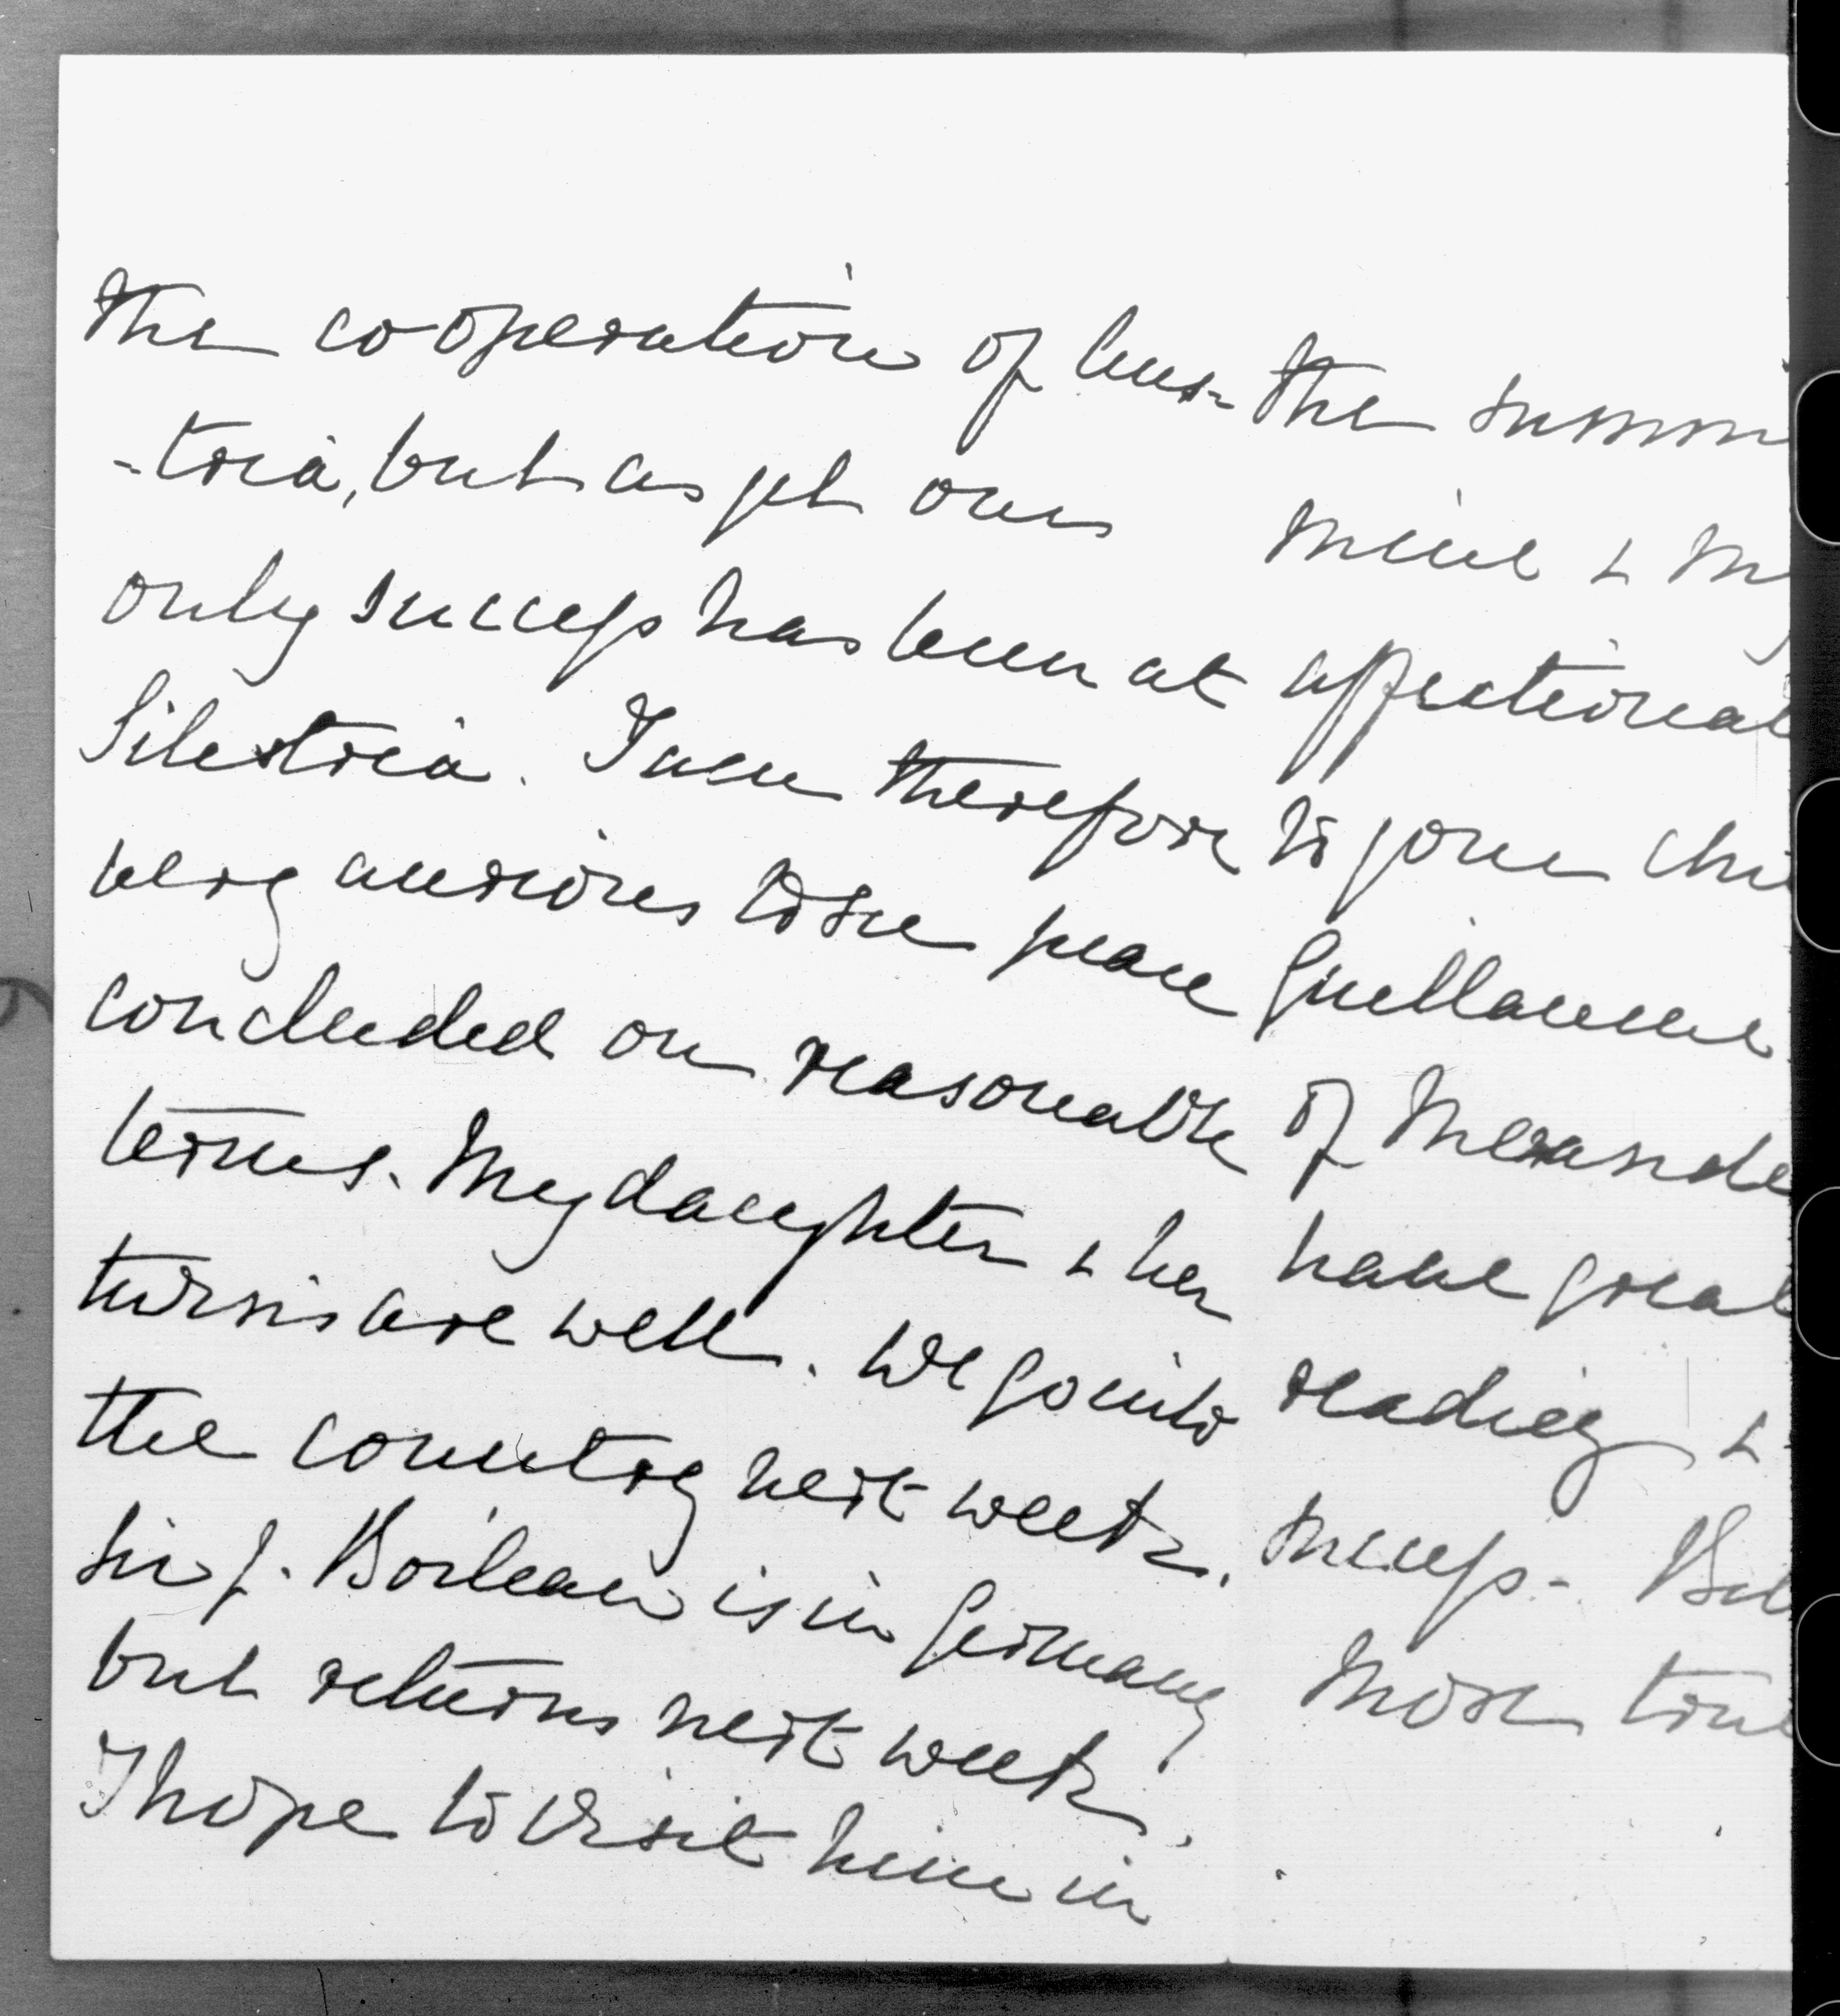 the cooperation of Aus-
-tria, but as yet our
only success has been at
Silistria. I am therefore
very anxious to see peace
concluded on reasonable
terms. My daughter & her
twins are well. We go into
the country next week.
Sir J. Boileau is in Germany
but returns next week.
I hope to visit him in
the summ
mine & my
affectionat
to your chi
Guillaume
of Alexande
have great
reading &
success - But
More true